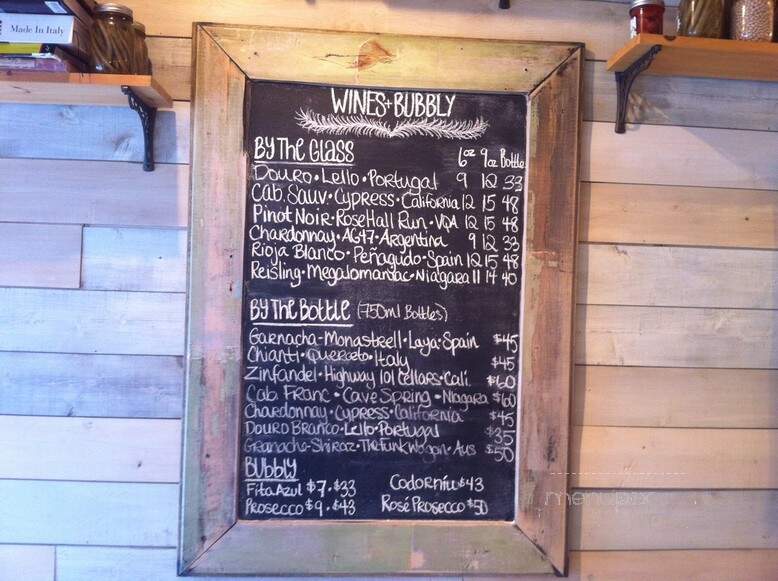 Made In Italy
WINES + BUBBLY
BY The Glass 6oz 9oz Bottle
Douro • Lello • Portugal 9 12 33
Cab. Sauv • Cypress • California 12 15 48
Pinot Noir • Rose Hall Run • VQA 12 15 48
Chardonnay • AG47 • Argentina 9 12 33
Rioja Blanco • Peñagudo • Spain 12 15 48
Reisling • Megalomaniac • Niagara 11 14 40
BY The Bottle (750ml Bottles)
Garnacha - Monastrell • Laya • Spain $45
Chianti • Querceto • Italy $45
Zinfandel • Highway 101 Cellars • Cali. $60
Cab Franc • Cave Spring • Niagara $60
Chardonnay • Cypress • California $45
Douro Branco • Lello • Portugal $35
Granache - Shiraz • The Funk Wagon • Aus $50
BUbbly
Fita Azul $7 • $33 Codorniu $43
Prosecco $9 • $43 Rosé Prosecco $50
menupix